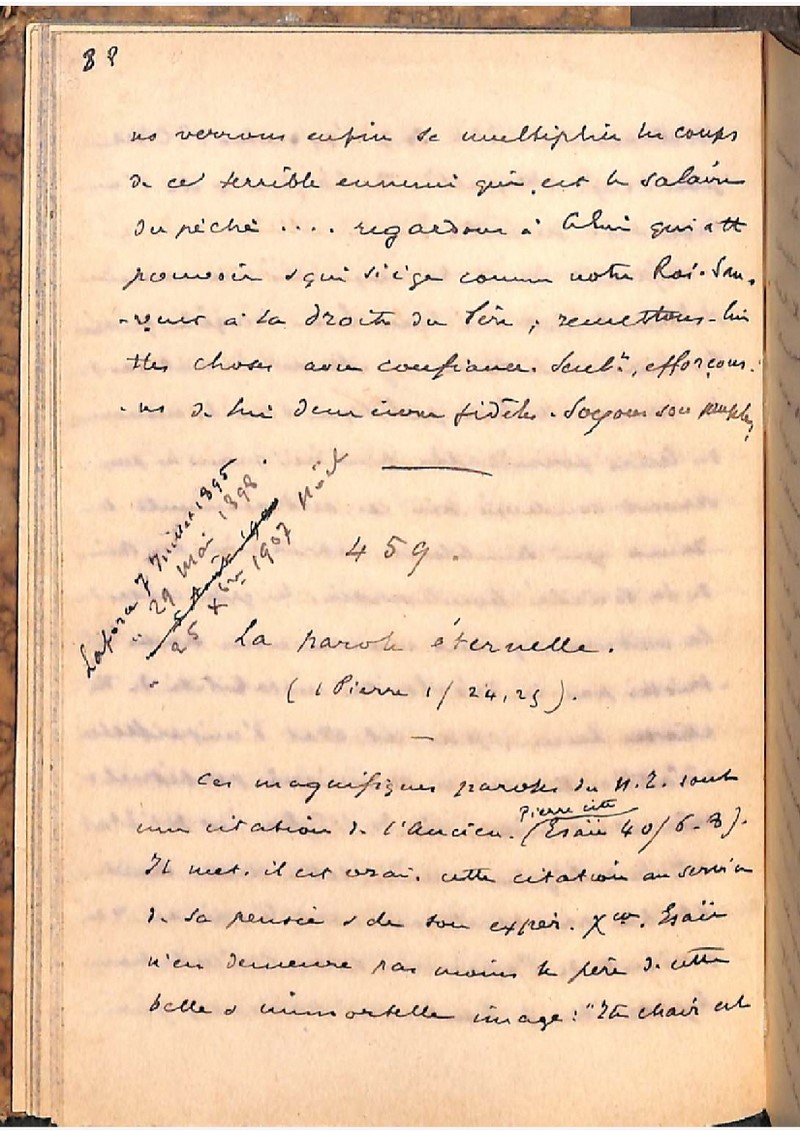 88
ns verrons enfin se multiplier les coups
de ce terrible ennemi qui est le salaire
du péché .... regardons à Celui qui a tt
pouvoir & qui siège comme notre Roi-Sau-
-veur à la droite du Père ; remettons-lui
ttes choses avec confiance. Seult, efforçons-
-ns de lui demeurer fidèles. Soyons son peuple,
7 Juillet 1895
" 29 Mai 1898
" 25 Xbre 1907 Noël
459.
La parole éternelle.
(1 Pierre 1/24,25).
Ces magnifiques paroles du N.T. sont
une citation de l'Ancien. (Esaïe 40/6-8).
Pierre cite
Il met, il est vrai, cette citation au service
de sa pensée & de son expér. Xne. Esaïe
n'en demeure pas moins le père de cette
belle & immortelle image : "Tte chair est